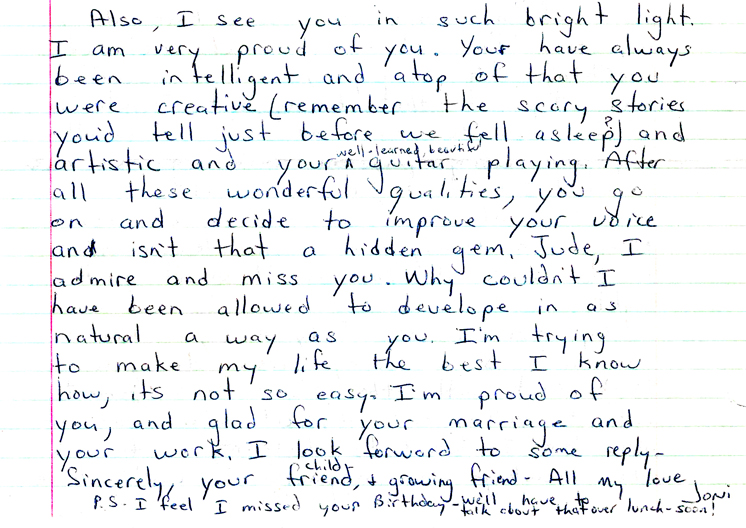 Also, I see you in such bright light.
I am very proud of you. Your have always
been intelligent and atop of that you
were creative (remember the scary stories
you'd tell just before we fell asleep?) and
artistic and your well-learned, beautiful guitar playing. After
all these wonderful qualities, you go
on and decide to improve your voice
and isn't that a hidden gem. Jude, I
admire and miss you. Why couldn't I
have been allowed to develope in as
natural a way as you. I'm trying
to make my life the best I know
how, its not so easy. I'm proud of
you, and glad for your marriage and
your work. I look forward to some reply-
Sincerely, your child friend, & growing friend - All my love,
Joni
P.S. I feel I missed your Birthday - we'll have to
talk about that over lunch - soon!